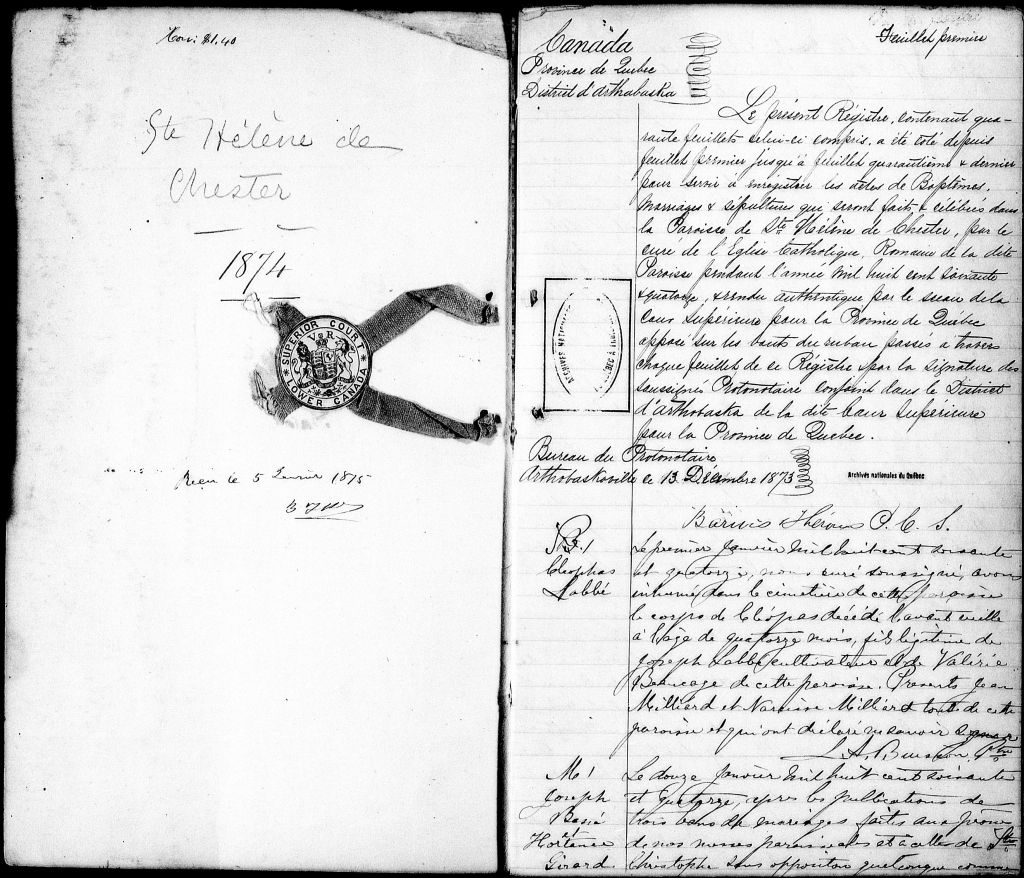 Hon: $1.40
Ste Hélène de
Chester
1874
SUPERIOR COURT
V R
LOWER CANADA
Reçu le 5 Janvier 1875
Canada
Province de Quebec
District d'arthabaska
Feuillet premier
Le présent Régistre, contenant qua-
rante feuillets celui-ci compris, a été coté depuis
feuillet premier jusqu'à feuillet quarantième & dernier
pour servir à enrégistrer les actes de Baptêmes,
Mariages & sépultures qui seront faits & célébrés dans
la Paroisse de Ste Hélène de Chester, par le
curé de l'Eglise Catholique, Romaine de la dite
Paroisse pendant l'année mil huit cent soixante
& quatorze, & rendu authentique par le sceau de la
Cour Supérieure pour la Province de Québec
apposé sur les bouts du ruban passés à travers
chaque feuillet de ce Régistre & par la signature du
soussigné Protonotaire conjoint dans le District
d'arthabaska de la dite Cour Supérieure
pour la Province de Quebec.
ARCHIVES NATIONALES
Bureau du Protonotaire
Arthabaskaville ce 13 Décembre 1873
Archives nationales du Québec
P. C. S.
S. 1
Cléophas
Labbé
Le premier Janvier mil huit cent soixante
et quatorze, nous curé soussigné, avons
inhumé dans le cimetière de cette paroisse
le corps de Cléopas décédé l'avant veille
à l'age de quatorze mois, fils légitime de
Joseph Labbé cultivateur et de Valérie
Beaucage de cette paroisse. Presents Jean
Milliard et Narcisse Milliard tout de cette
paroisse et qui ont déclaré ne savoir signer
L. A. Buisson Ptre
M 1
Joseph
et
Hortense
Girard
Le douze Janvier mil huit cent soixante
et quatorze, après les publications de
trois bans de mariages faites aux prônes
de nos messes paroissiales et à celles de St
Christophe sans opposition quelconque